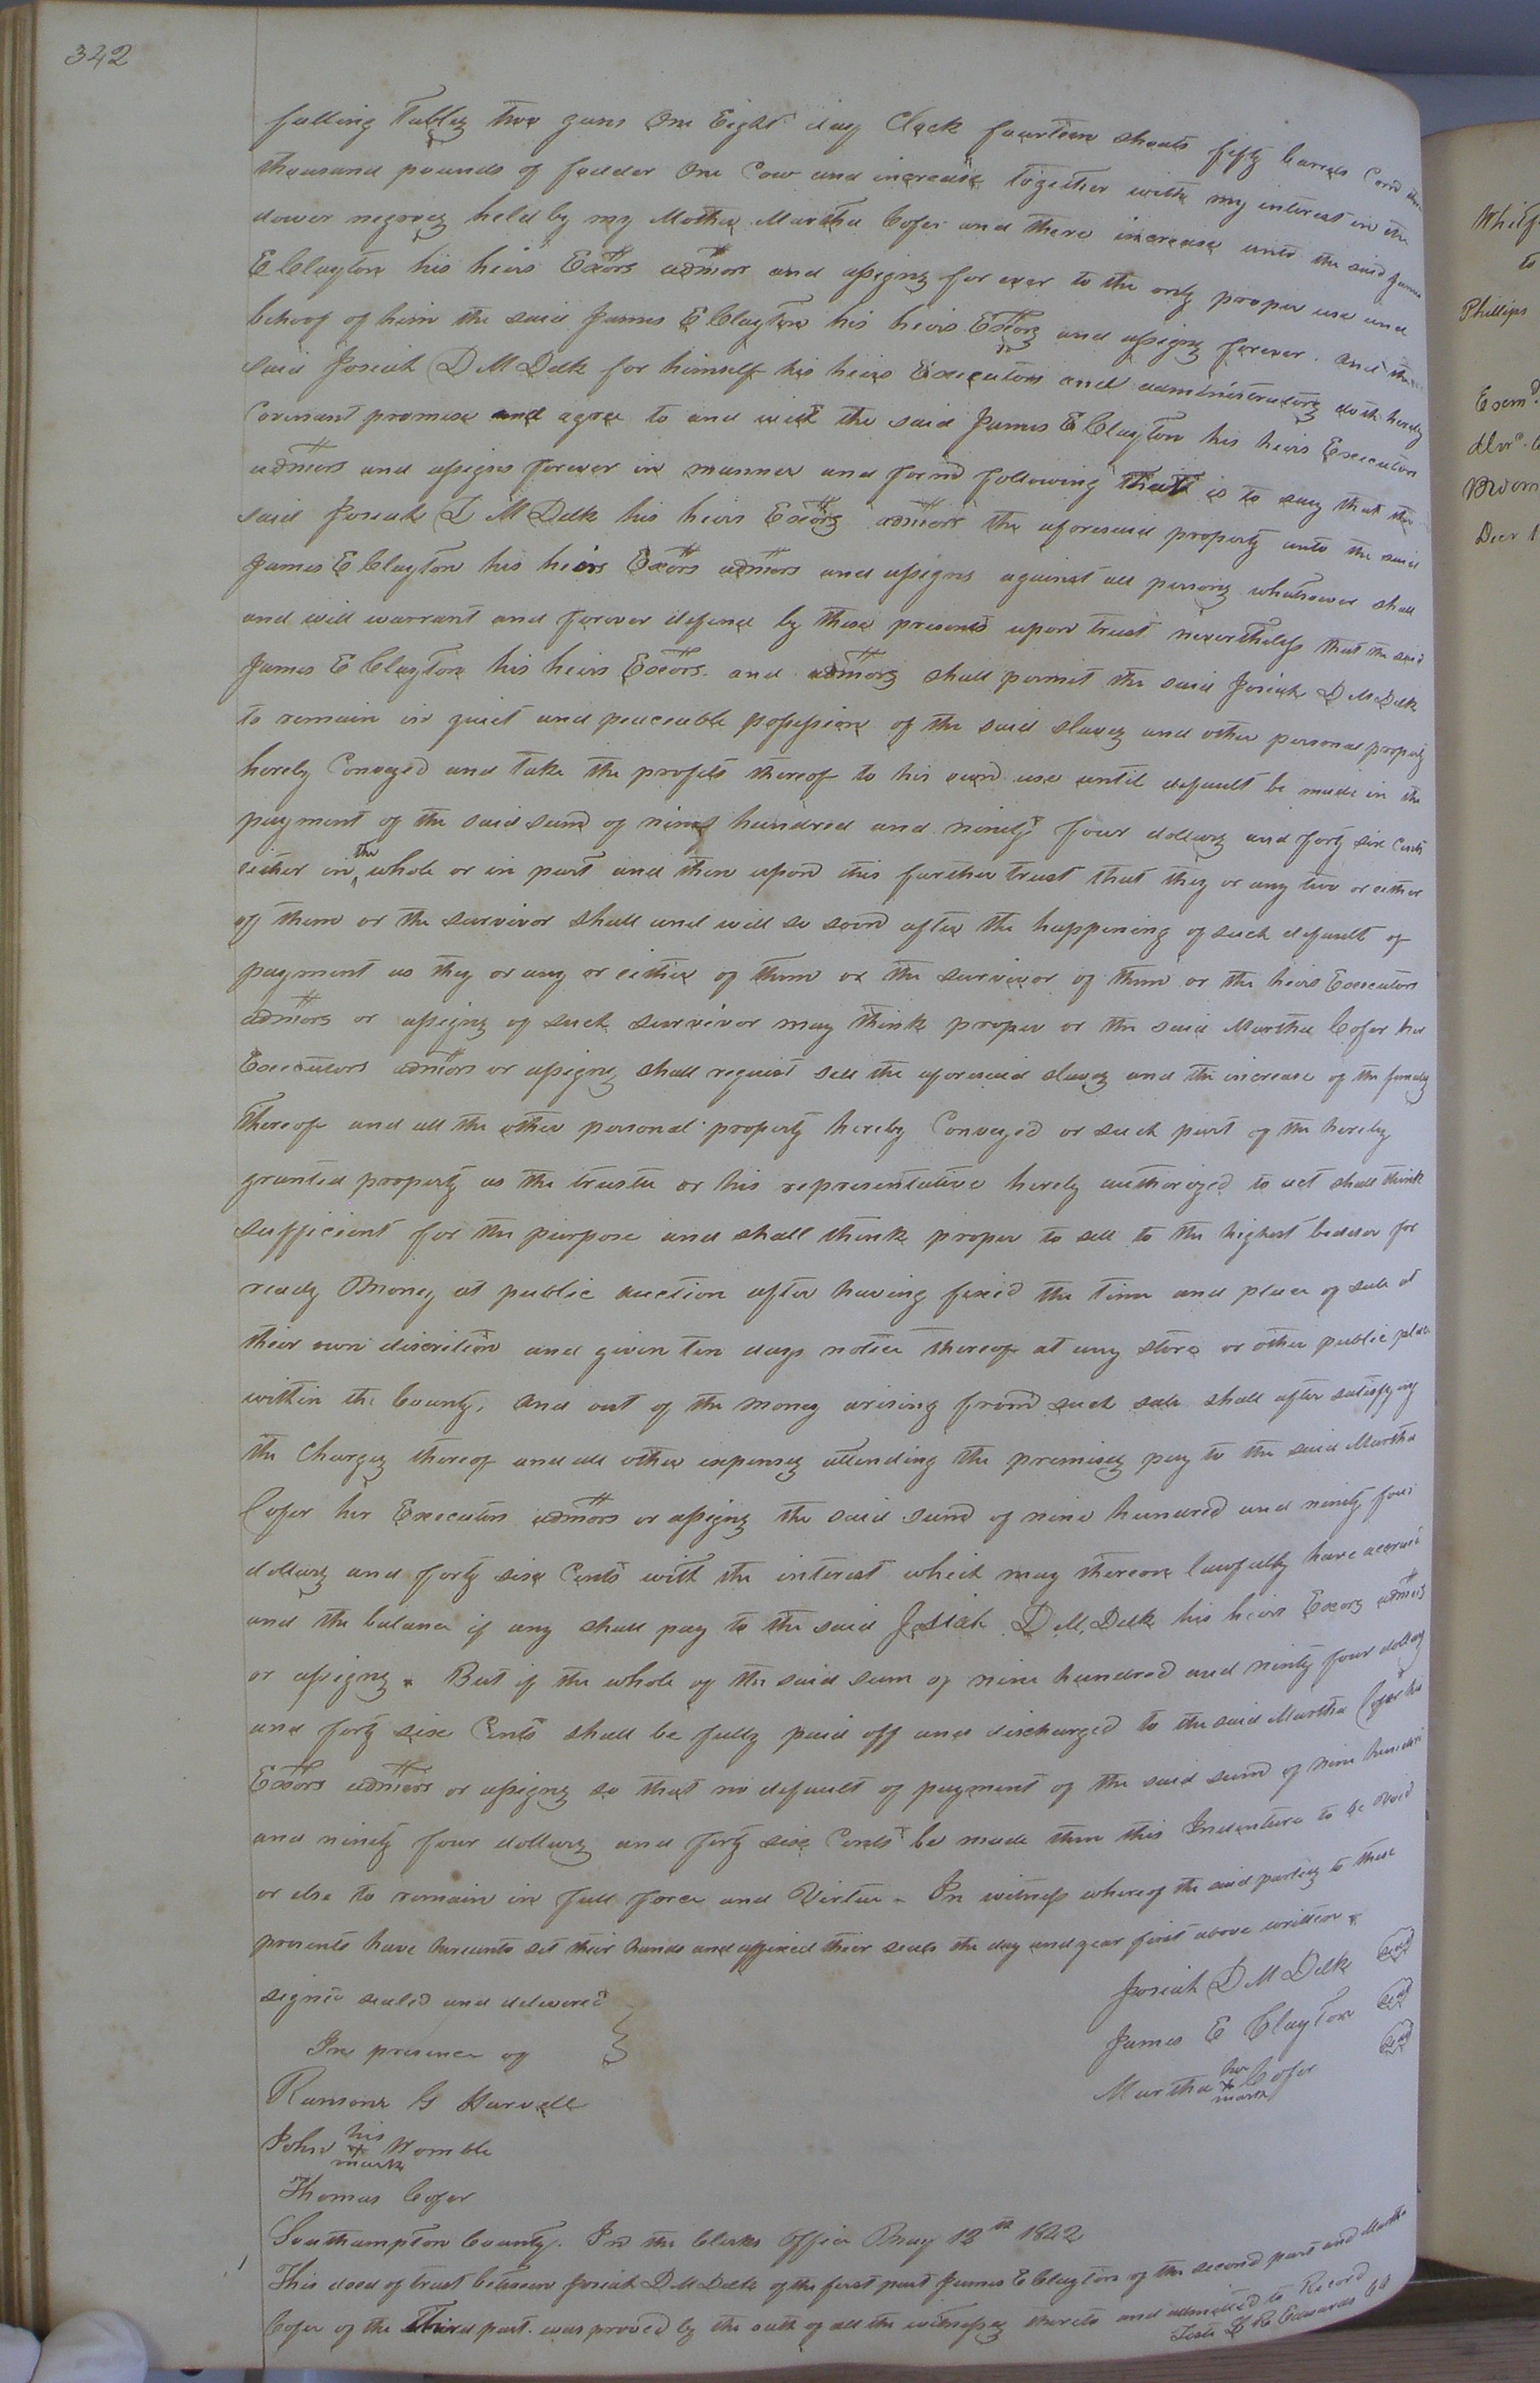 342
falling Tables two guns One Eight day Clock fourteen shoats fifty barrels Corn
thousand pounds of fodder One Cow and increase together with my interest in the
dower negroes held by my Mother Martha Cofer and there increase unto the said James
E Clayton his heirs Exors admors and assigns for ever to the only proper use and
behoof of him the said James E Clayton his heirs Exors and assigns forever. and the
said Josiah D M Delk for himself his heirs Executors and administrators doth hereby
Covenant promise and agree to and with the said James E Clayton his heirs Executors
admors and assigns forever in manner and form following That is to say that the
said Josiah D M Delk his heirs Exors admors the aforesaid property unto the said
James E Clayton his heirs Exors admors and assigns against all persons whatsoever shall
and will warrant and forever defend by these presents upon trust nevertheless that the said
James E Clayton his heirs Exors. and admors shall permit the said Josiah D M Delk
to remain in quiet and peaceable possession of the said slaves and other personal property
hereby Conveyed and take the profits thereof to his own use until default be made in the
payment of the said sum of nine hundred and ninety four dollars and forty six Cents
either in the whole or in part and then upon this further trust that they or any two or either
of them or the survivor shall and will so soon after the happening of such default of
payment as they or any or either of them or the survivor of them or the heirs Executors
admors or assigns of such survivor may think proper or the said Martha Cofer her
Executors admors or assigns shall request sell the aforesaid slaves and the increase of the females
thereof and all the other personal property hereby Conveyed or such part of the hereby
granted property as the trustee or his representative hereby authorized to act shall think
sufficient for the purpose and shall think proper to sell to the highest bidder for
ready Money at public auction after having fixed the time and place of sale at
their own discretion and given ten days notice thereof at any store or other public place
within the County, and out of the money arising from such sale shall after satisfying
the Charges thereof and all other expenses attending the premises pay to the said Martha
Cofer her Executors admors or assigns the said sum of nine hundred and ninety four
dollars and forty six Cents with the interest which may thereon lawfully have accrued
and the balance if any shall pay to the said Josiah D M. Delk his heirs Exors admors
or assigns. But if the whole of the said sum of nine hundred and ninety four dollars
and forty six Cents shall be fully paid off and discharged to the said Martha Cofer her
Exors admors or assigns so that no default of payment of the said sum of nine hundred
and ninety four dollars and forty six Cents be made then this Indenture to be void
or else to remain in full force and Virtue - In witness whereof the said parties to these
presents have hereunto set their hands and affixed their seals the day and year first above written.
signed sealed and delivered
In presence of
Josiah D M Delk seal
James E Clayton seal
Martha her x mark Cofer seal
Ransom G Harvell
John his x mark Womble
Thomas Cofer
Southampton County. In the Clerks Office May 12th 1842
This deed of trust between Josiah D M Delk of the first part James E Clayton of the second part and Martha
Cofer of the Third part. was proved by the oath of all the witnesses thereto and admitted to Record
Teste L R Edwards Clk
to
Phillips